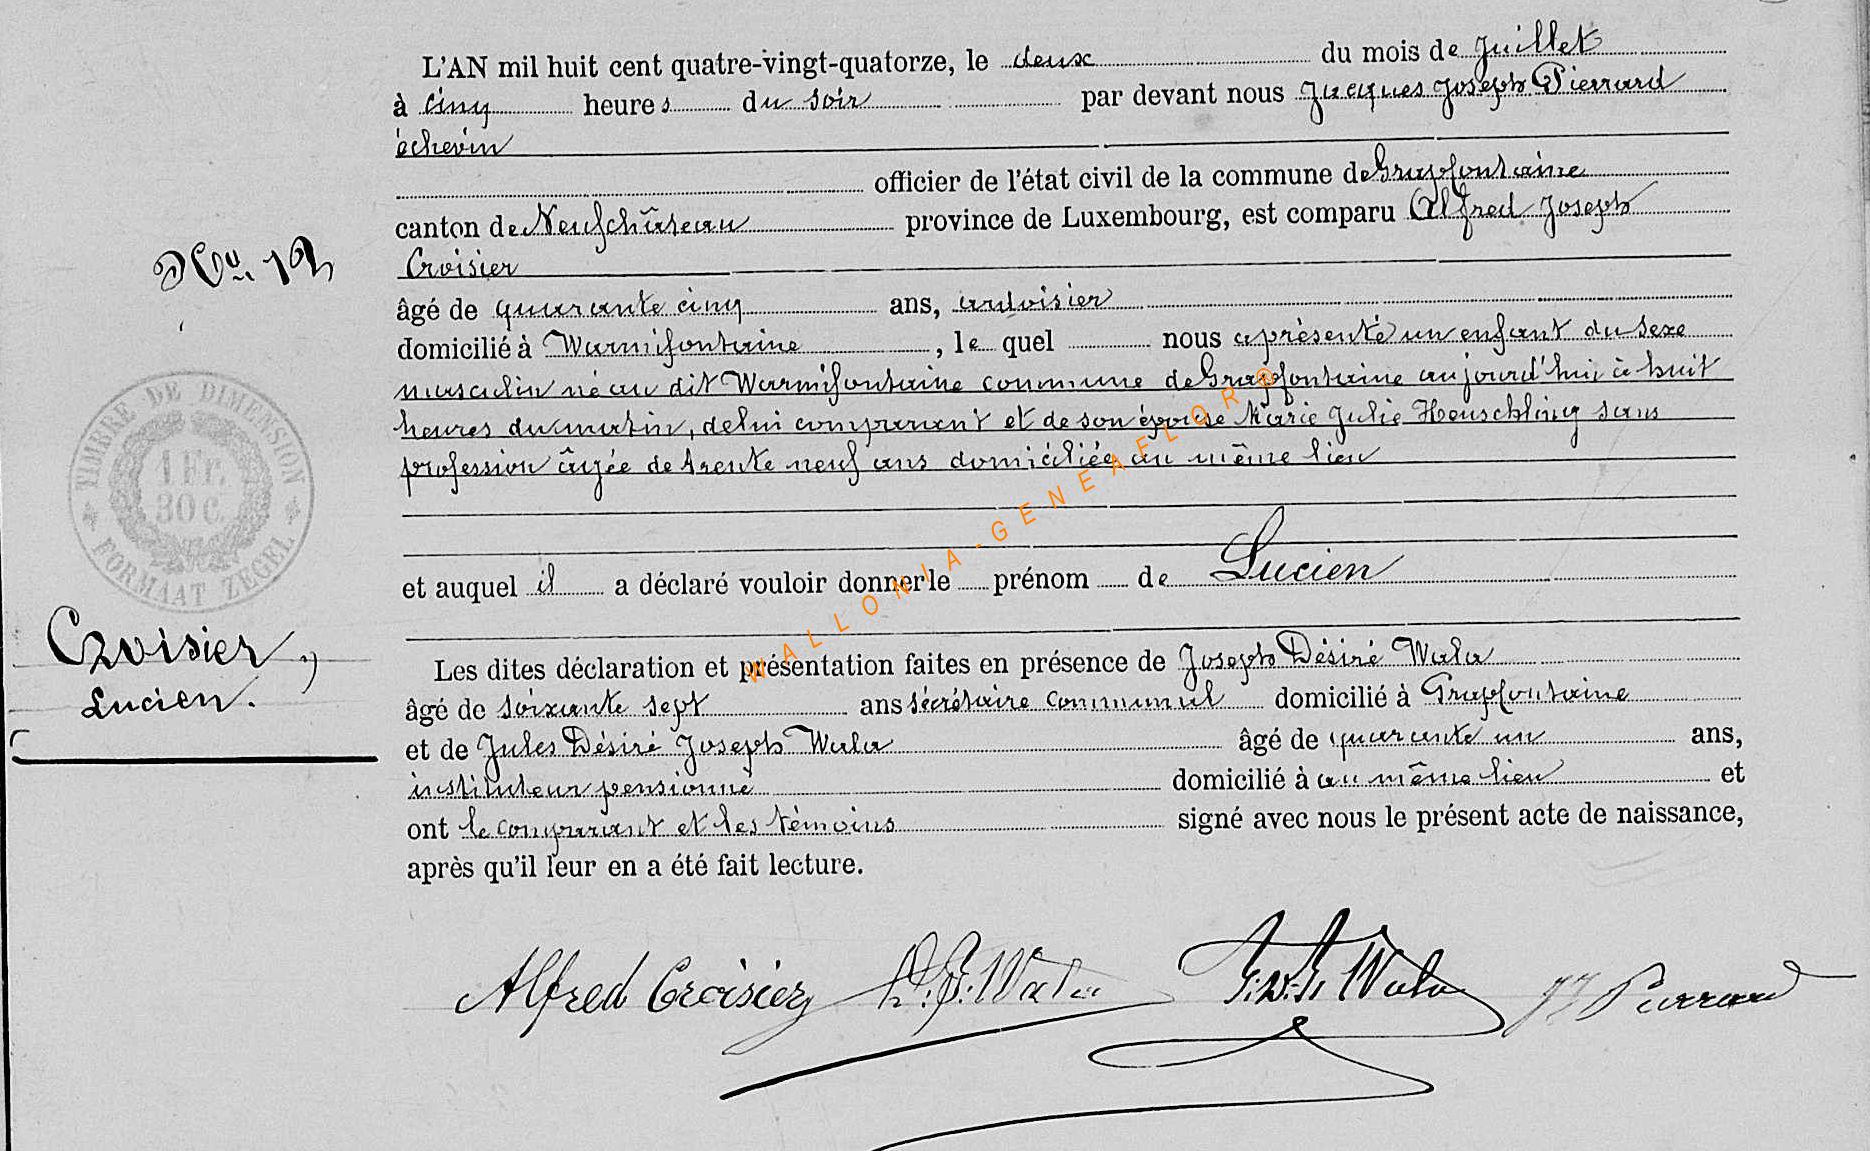 L'AN mil huit cent quatre-vingt-quatorze, le deux du mois de Juillet
à cinq heures du soir par devant nous Jacques Joseph Pierrard
échevin
officier de l'état civil de la commune de Grapfontaine
canton de Neufchâteau province de Luxembourg, est comparu Alfred Joseph
Croisier
No 12
âgé de quarante cinq ans, ardoisier
domicilié à Warmifontaine, le quel nous a présenté un enfant du sexe
masculin né au dit Warmifontaine commune de Grapfontaine aujourd'hui à huit
heures du matin, de lui comparant et de son épouse Marie Julie Heuschling sans
profession âgée de trente neuf ans domiciliée au même lieu
TIMBRE DE DIMENSION
1 Fr.
30 c.
FORMAAT ZEGEL
et auquel il a déclaré vouloir donner le prénom de Lucien
Croisier,
Lucien.
Les dites déclaration et présentation faites en présence de Joseph Désiré Wala
âgé de soixante sept ans secrétaire communal domicilié à Grapfontaine
et de Jules Désiré Joseph Wala âgé de quarante un ans,
instituteur pensionné domicilié à au même lieu et
ont le comparant et les témoins signé avec nous le présent acte de naissance,
après qu'il leur en a été fait lecture.
WALLONIA-GENEAFLOR®
Alfred Croisier Wala Wala JJ Pierrard